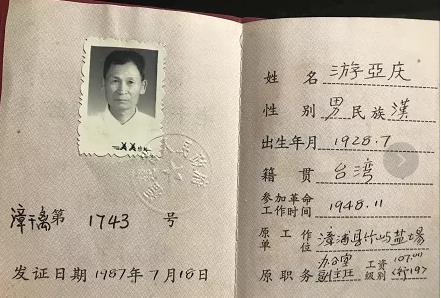 漳离第 1743 号
发证日期 1987年7月18日
姓名 游亞庆
性别 男 民族 漢
出生年月 1928.7
籍贯 台湾
参加革命工作时间 1948.11
原工作单位 漳浦县竹屿盐场
原职务 办公室副主任 工资级别